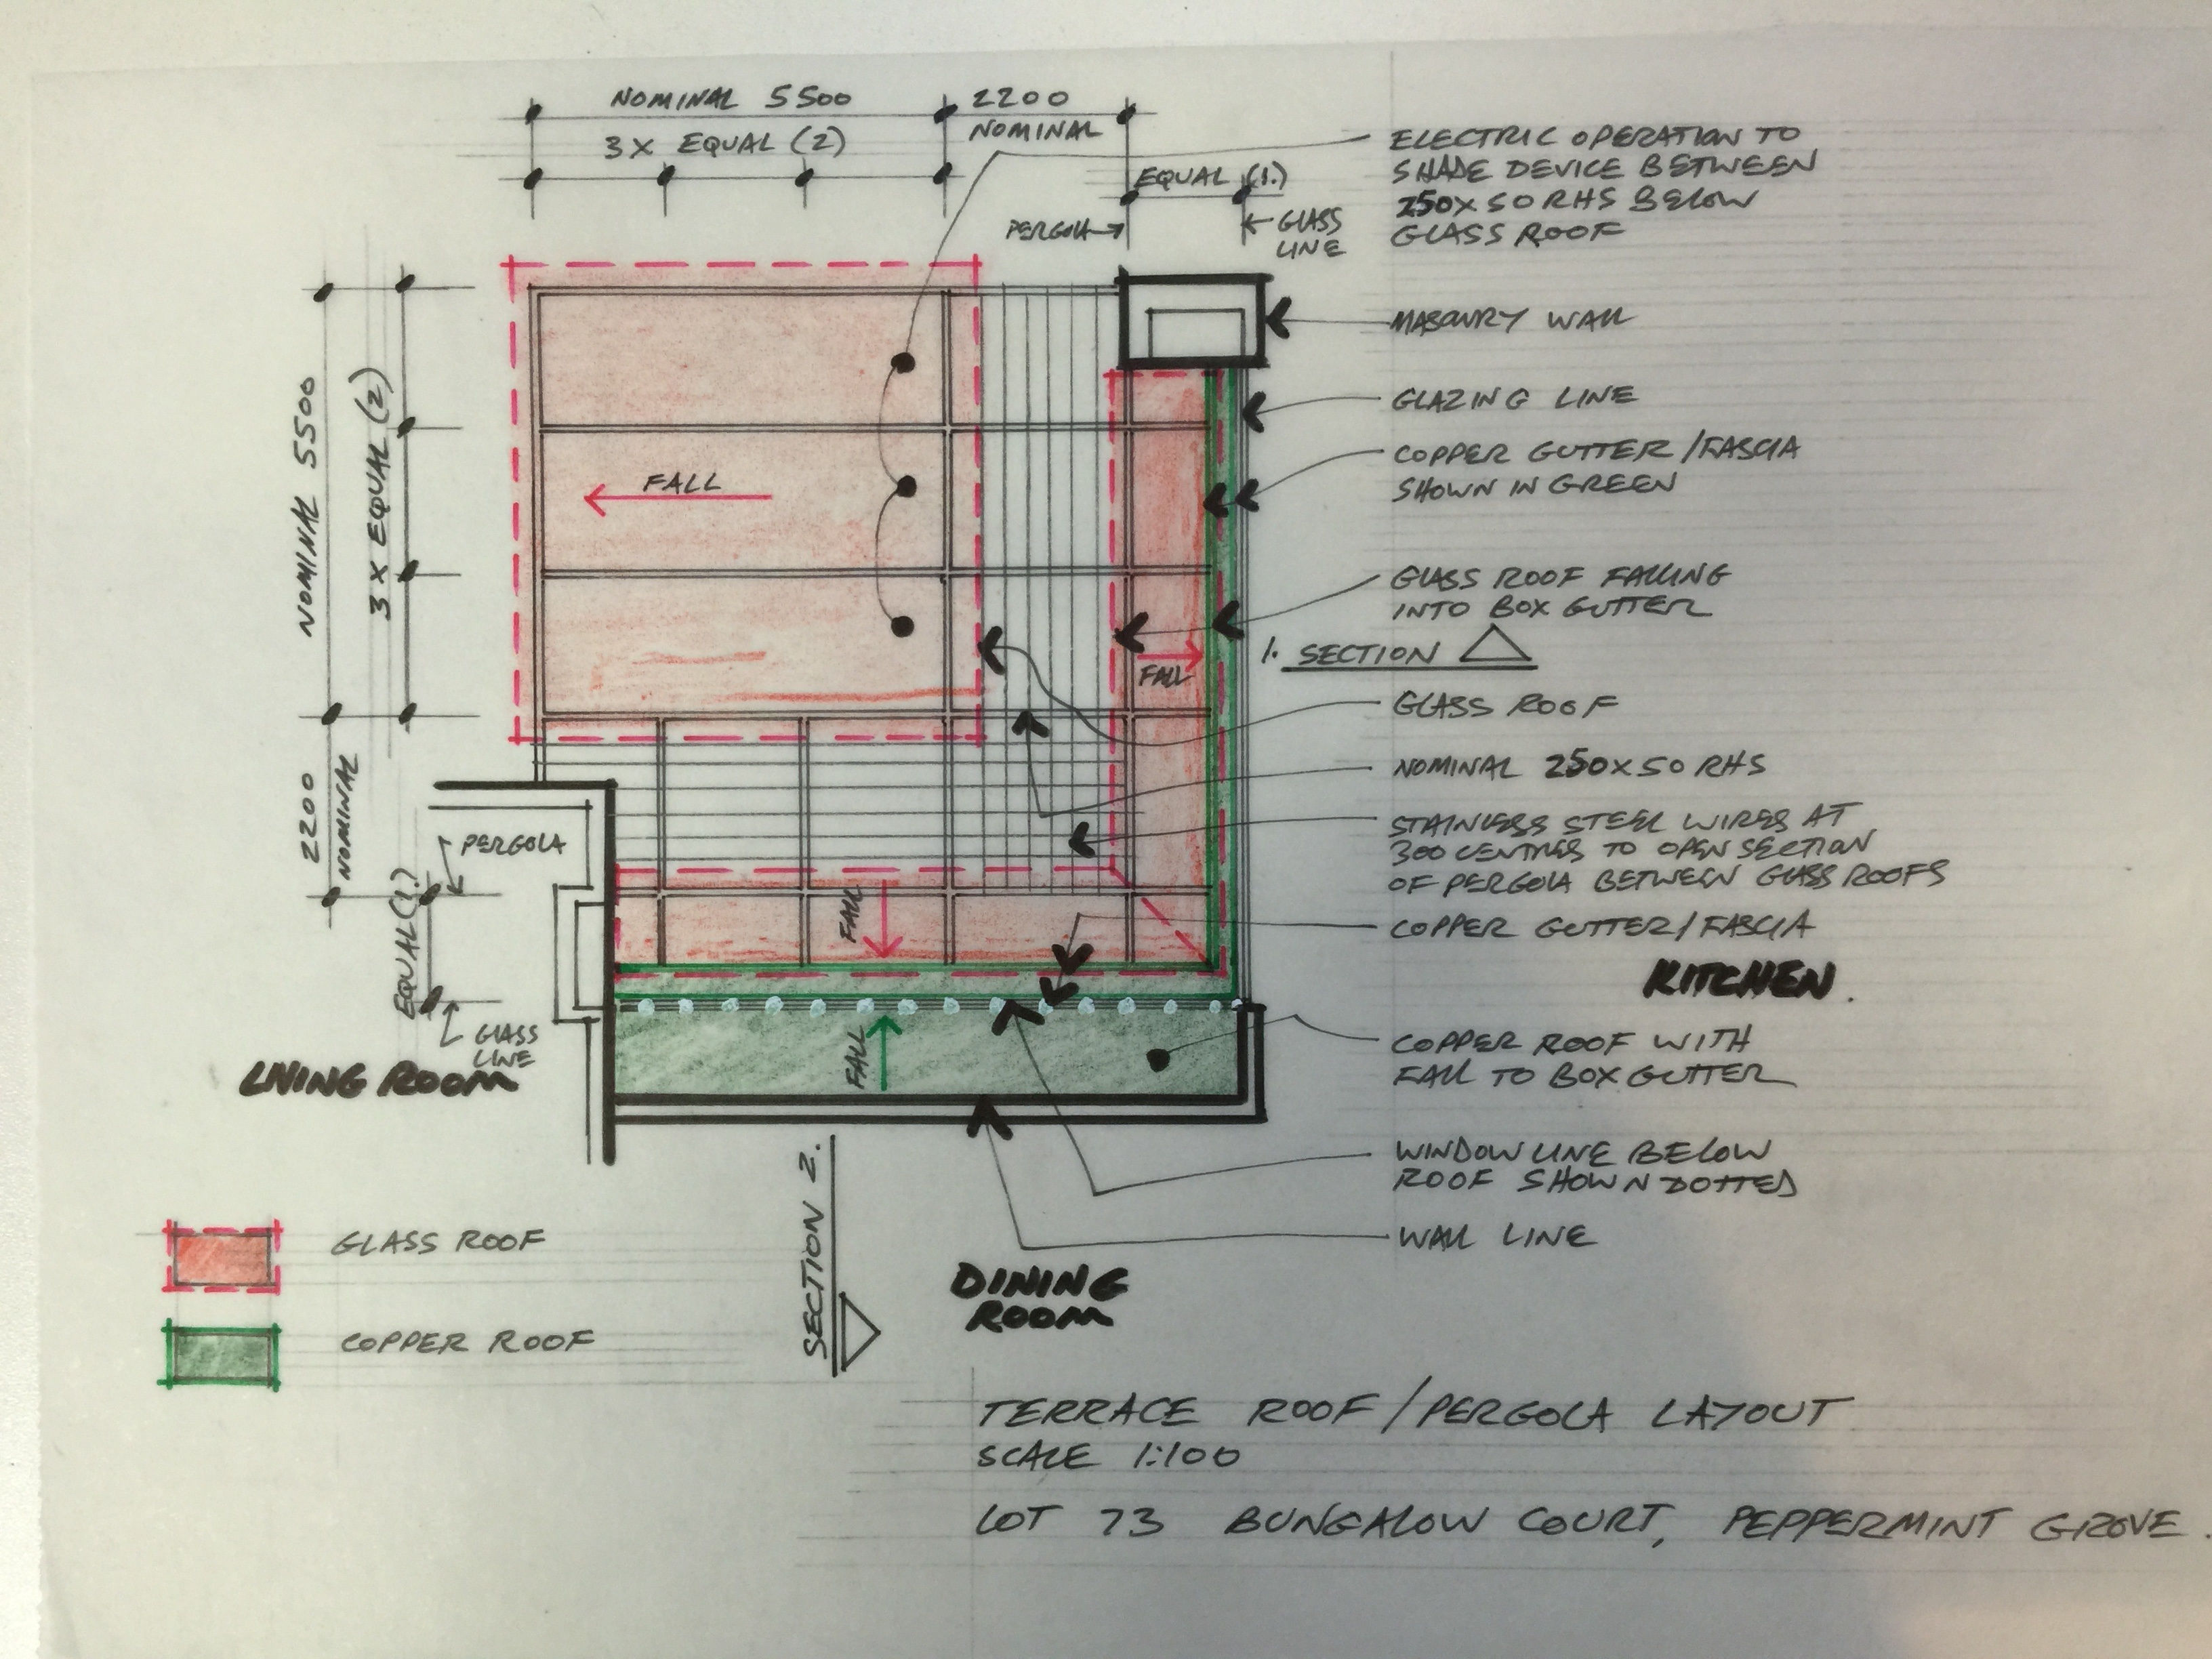 NOMINAL 5500
2200
NOMINAL
3 X EQUAL (2)
EQUAL (1.)
PERGOLA
GLASS
LINE
ELECTRIC OPERATION TO
SHADE DEVICE BETWEEN
250X50 RHS BELOW
GLASS ROOF
MASONRY WALL
GLAZING LINE
COPPER GUTTER/FASCIA
SHOWN IN GREEN
GLASS ROOF FALLING
INTO BOX GUTTER
1. SECTION
GLASS ROOF
NOMINAL 250X50 RHS
STAINLESS STEEL WIRES AT
300 CENTRES TO OPEN SECTION
OF PERGOLA BETWEEN GLASS ROOFS
COPPER GUTTER/FASCIA
KITCHEN.
COPPER ROOF WITH
FALL TO BOX GUTTER
WINDOW LINE BELOW
ROOF SHOWN DOTTED
WALL LINE
NOMINAL 5500
3 X EQUAL (2)
2200
NOMINAL
EQUAL (1.)
PERGOLA
GLASS
LINE
FALL
FALL
FALL
FALL
LIVING ROOM
SECTION 2.
DINING
ROOM
GLASS ROOF
COPPER ROOF
TERRACE ROOF/PERGOLA LAYOUT
SCALE 1:100
LOT 73 BUNGALOW COURT, PEPPERMINT GROVE.